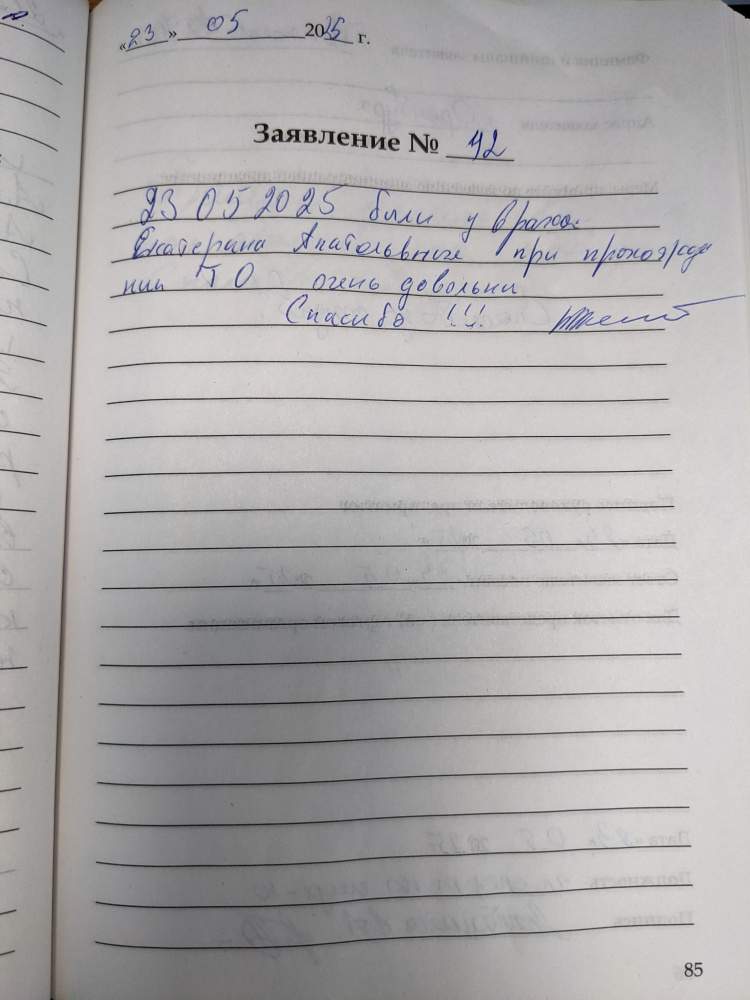 «23» 05 2025 г.
Заявление № 42
23 05 2025 были у врача
Екатерина Анатольвные при прохожде
нии ТО очень довольни
Спасибо !!!
85